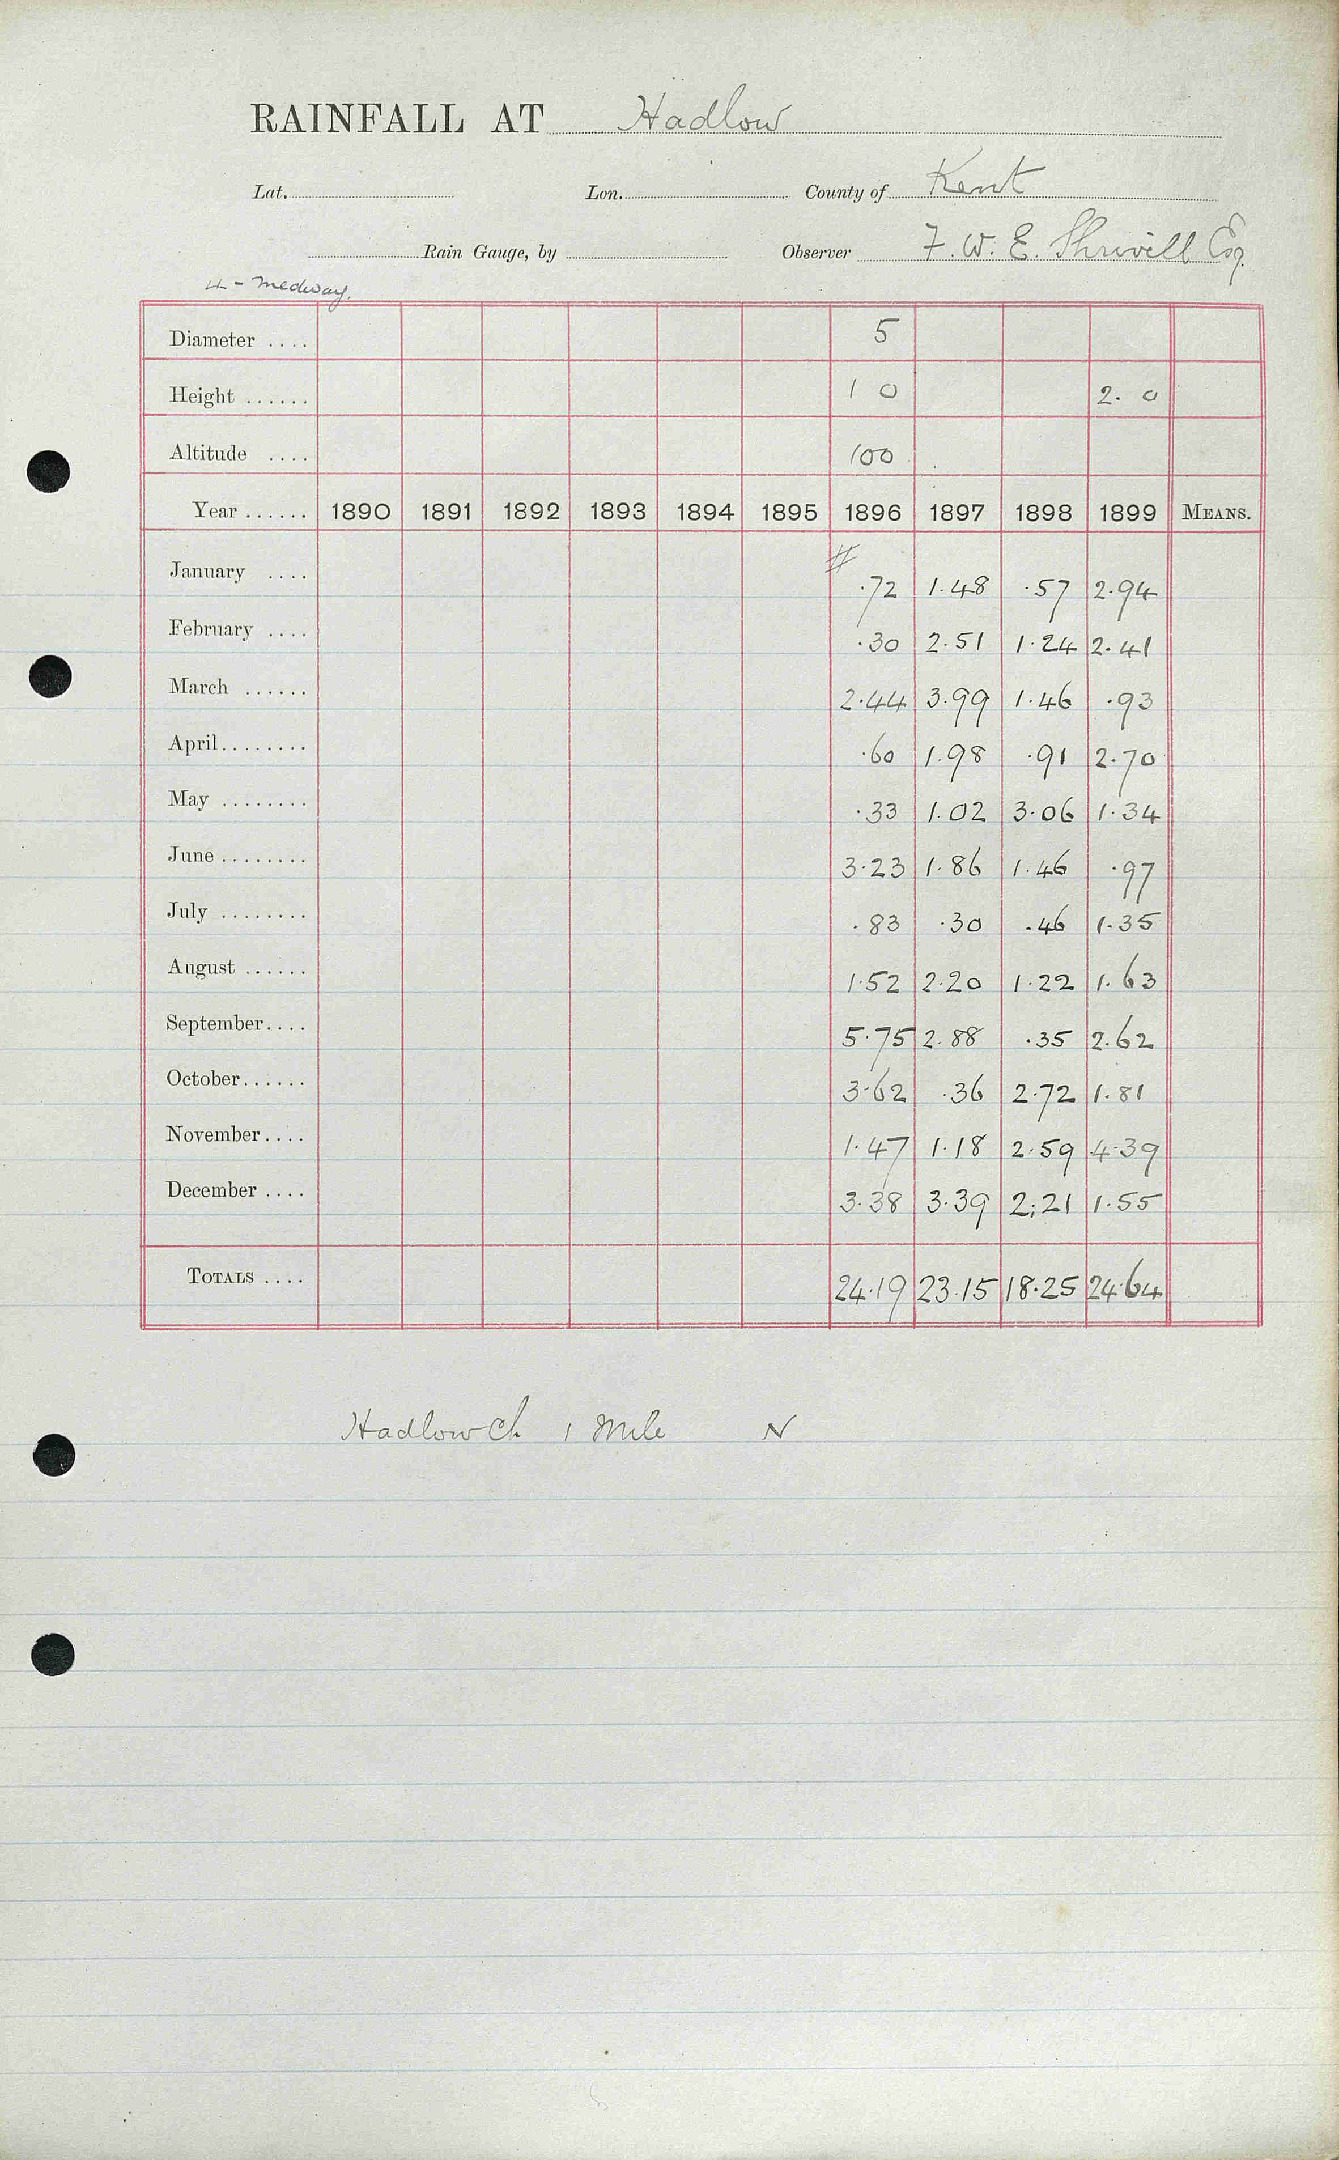 RAINFALL AT Hadlow
Lat. Lon. County of Kent
Rain Gauge, by Observer F. W. E. Shrivell Esq.
4 - Medway.
Diameter .... 5
Height ...... 1 0 2. 0
Altitude .... 100
Year ...... 1890 1891 1892 1893 1894 1895 1896 1897 1898 1899 MEANS.
#
January .... .72 1.48 .57 2.94
February .... .30 2.51 1.24 2.41
March ...... 2.44 3.99 1.46 .93
April........ .60 1.98 .91 2.70
May ........ .33 1.02 3.06 1.34
June ........ 3.23 1.86 1.46 .97
July ........ .83 .30 .46 1.35
August ...... 1.52 2.20 1.22 1.63
September.... 5.75 2.88 .35 2.62
October...... 3.62 .36 2.72 1.81
November.... 1.47 1.18 2.59 4.39
December .... 3.38 3.39 2.21 1.55
TOTALS .... 24.19 23.15 18.25 24.64
Hadlow Ch 1 Mile N